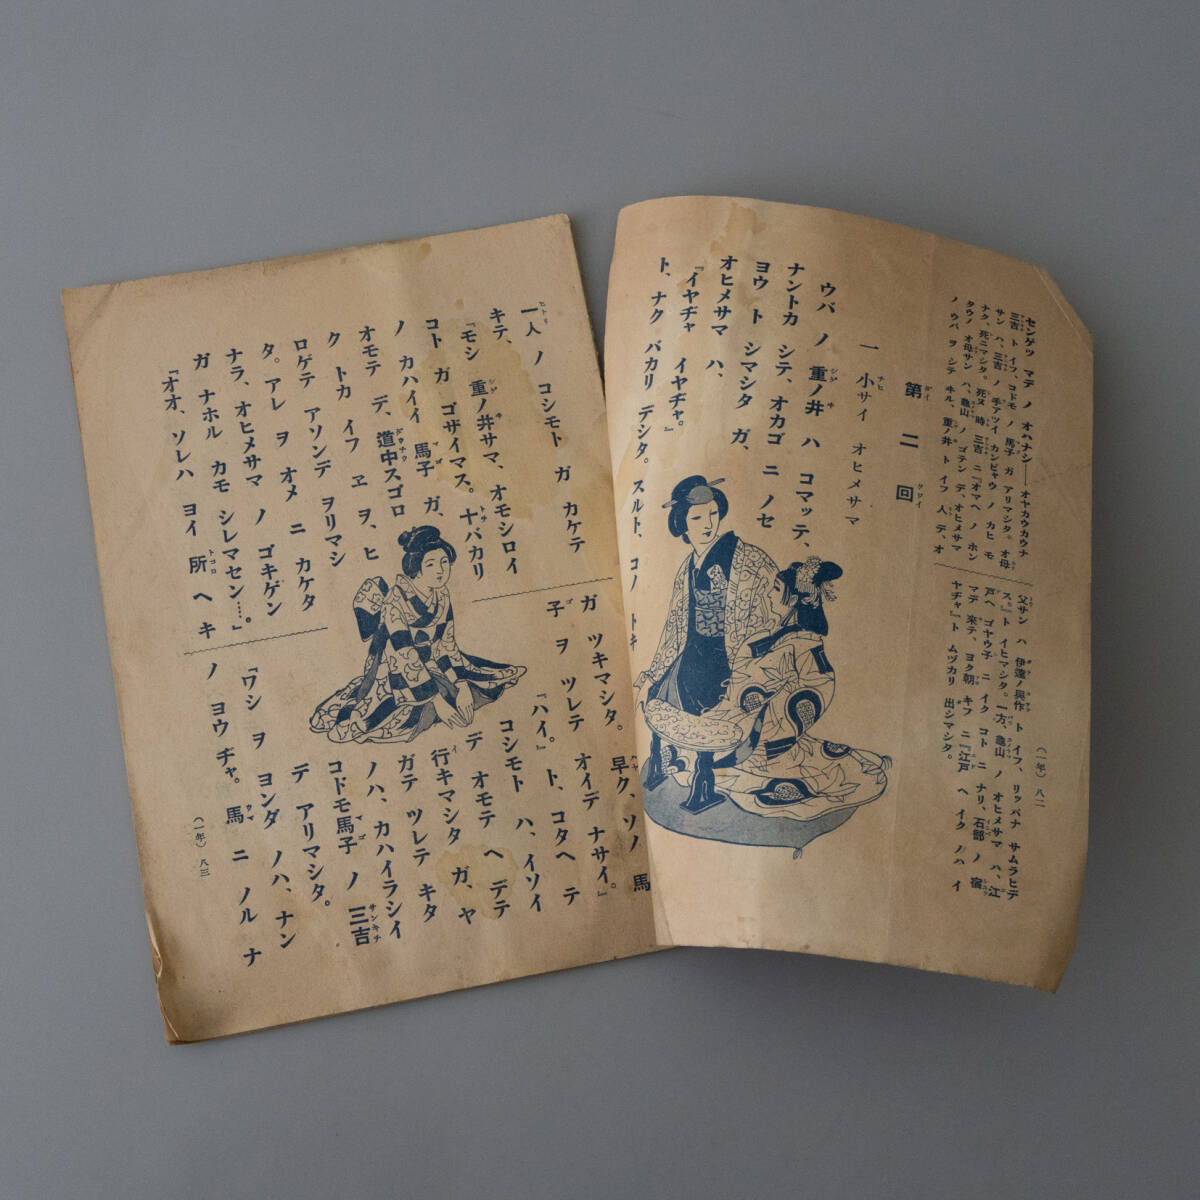 センゲツ マデ ノ オハナシ――オヤカウカウナ
三吉 ト イフ、コドモ ノ 馬子 ガ アリマシタ。オ母
サン ハ、三吉 ノ 手アツイ カンビャウ ノ カヒ モ
ナク、死ニマシタ。死ヌ 時 三吉 ニ『オマヘ ノ ホン
タウノ オ母サン ハ、龜山 ノ ゴテン デ、オヒメサマ
ノ ウバ ヲ シテ ヰル、重ノ井 ト イフ 人 デ、オ
父サン ハ 伊達ノ與作 ト イフ、リッパナ サムラヒデ
ス。』ト イヒマシタ。一方、龜山 ノ オヒメサマ ハ、江
戸ヘ ゴヤウ子 ニ イク コト ニ ナリ、石部 ノ 宿
マデ 來テ、ヨク朝 キフ ニ『江戸 ヘ イク ノハ イ
ヤヂャ』ト ムヅカリ 出シマシタ。
第二回
一 小サイ オヒメサマ
ウバ ノ 重ノ井 ハ コマッテ、
ナントカ シテ、オカゴ ニ ノセ
ヨウ ト シマシタ ガ、
オヒメサマ ハ、
『イヤヂャ イヤヂャ。』
ト、ナク バカリ デシタ。スルト、コノ トキ
(一年) 八二
一人 ノ コシモト ガ カケテ
キテ、
『モシ 重ノ井サマ、オモシロイ
コト ガ ゴザイマス。十バカリ
ノ カハイイ 馬子 ガ、
オモテ デ、道中スゴロ
ク トカ イフ ヱ ヲ、ヒ
ロゲテ アソンデ ヲリマシ
タ。アレ ヲ オメ ニ カケタ
ナラ、オヒメサマ ノ ゴキゲン
ガ ナホル カモ シレマセン……。』
『オオ、ソレハ ヨイ 所 ヘ キ
ガ ツキマシタ。早ク、ソノ 馬
子 ヲ ツレテ オイデ ナサイ。』
『ハイ。』ト、コタヘ テ
コシモト ハ、イソイ
デ オモテ ヘ デテ
行キマシタ ガ、ヤ
ガテ ツレテ キタ
ノハ、カハイラシイ
コドモ馬子 ノ 三吉
デ アリマシタ。
『ワシ ヲ ヨンダ ノハ、ナン
ノ ヨウヂャ。馬 ニ ノル ナ
(一年) 八三